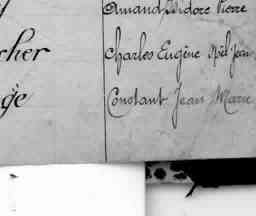 Amand Isidore Pierre
cher Charles Eugène Noël Jean
ge Constant Jean Marie